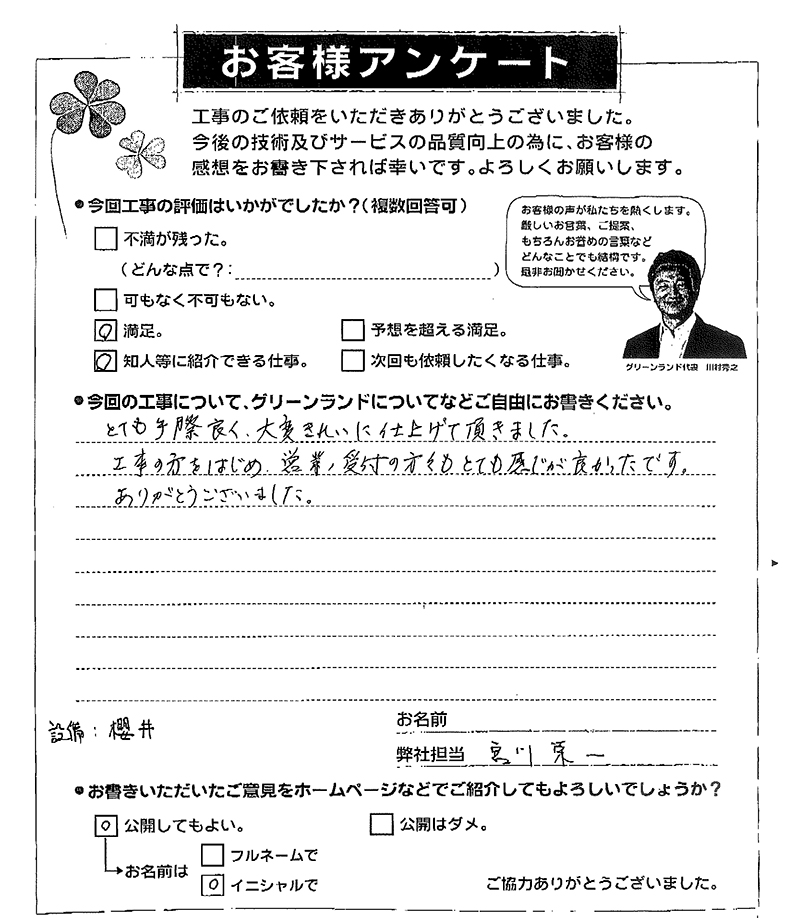 お客様アンケート
工事のご依頼をいただきありがとうございました。
今後の技術及びサービスの品質向上の為に、お客様の
感想をお書き下されば幸いです。よろしくお願いします。
●今回工事の評価はいかがでしたか?(複数回答可)
不満が残った。
(どんな点で?: )
可もなく不可もない。
満足。
予想を超える満足。
知人等に紹介できる仕事。
次回も依頼したくなる仕事。
お客様の声が私たちを熱くします。
厳しいお言葉、ご提案、
もちろんお誉めの言葉など
どんなことでも結構です。
是非お聞かせください。
グリーンランド代表 川村秀之
●今回の工事について、グリーンランドについてなどご自由にお書きください。
とても手際良く、大変きれいに仕上げて頂きました。
工事の方をはじめ、営業、受付の方々もとても感じが良かったです。
ありがとうございました。
設備:櫻井
お名前
弊社担当 宮川栄一
●お書きいただいたご意見をホームページなどでご紹介してもよろしいでしょうか?
公開してもよい。
公開はダメ。
お名前は
フルネームで
イニシャルで
ご協力ありがとうございました。